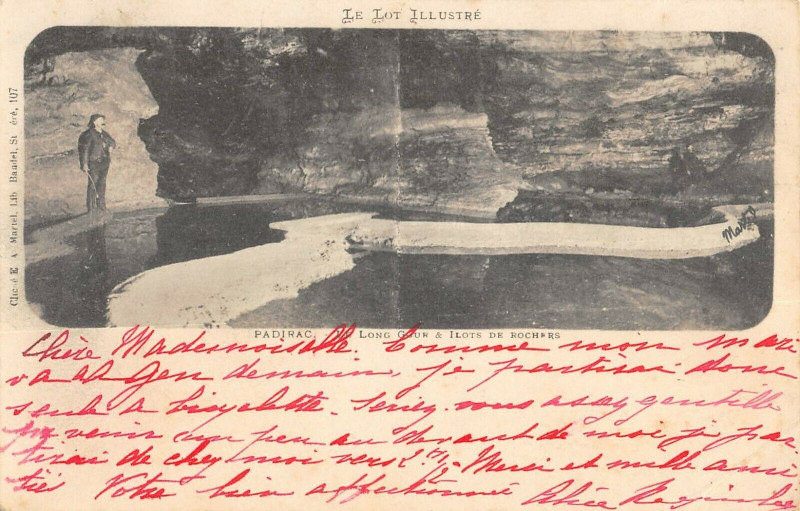 Le Lot Illustré
Cliché E. A. Martel. Lib. Baudel, St Céré, 107
Martel
PADIRAC. Long Gour & Ilots de rochers
Chère Mademoiselle. Comme mon mari
va à Agen demain, je partirai donc
seule à bicyclette. Seriez-vous assez gentille
pr venir un peu au devant de moi, je par-
tirai de chez moi vers 2h ½. Merci et mille ami-
tiés Votre bien affectionnée Alice